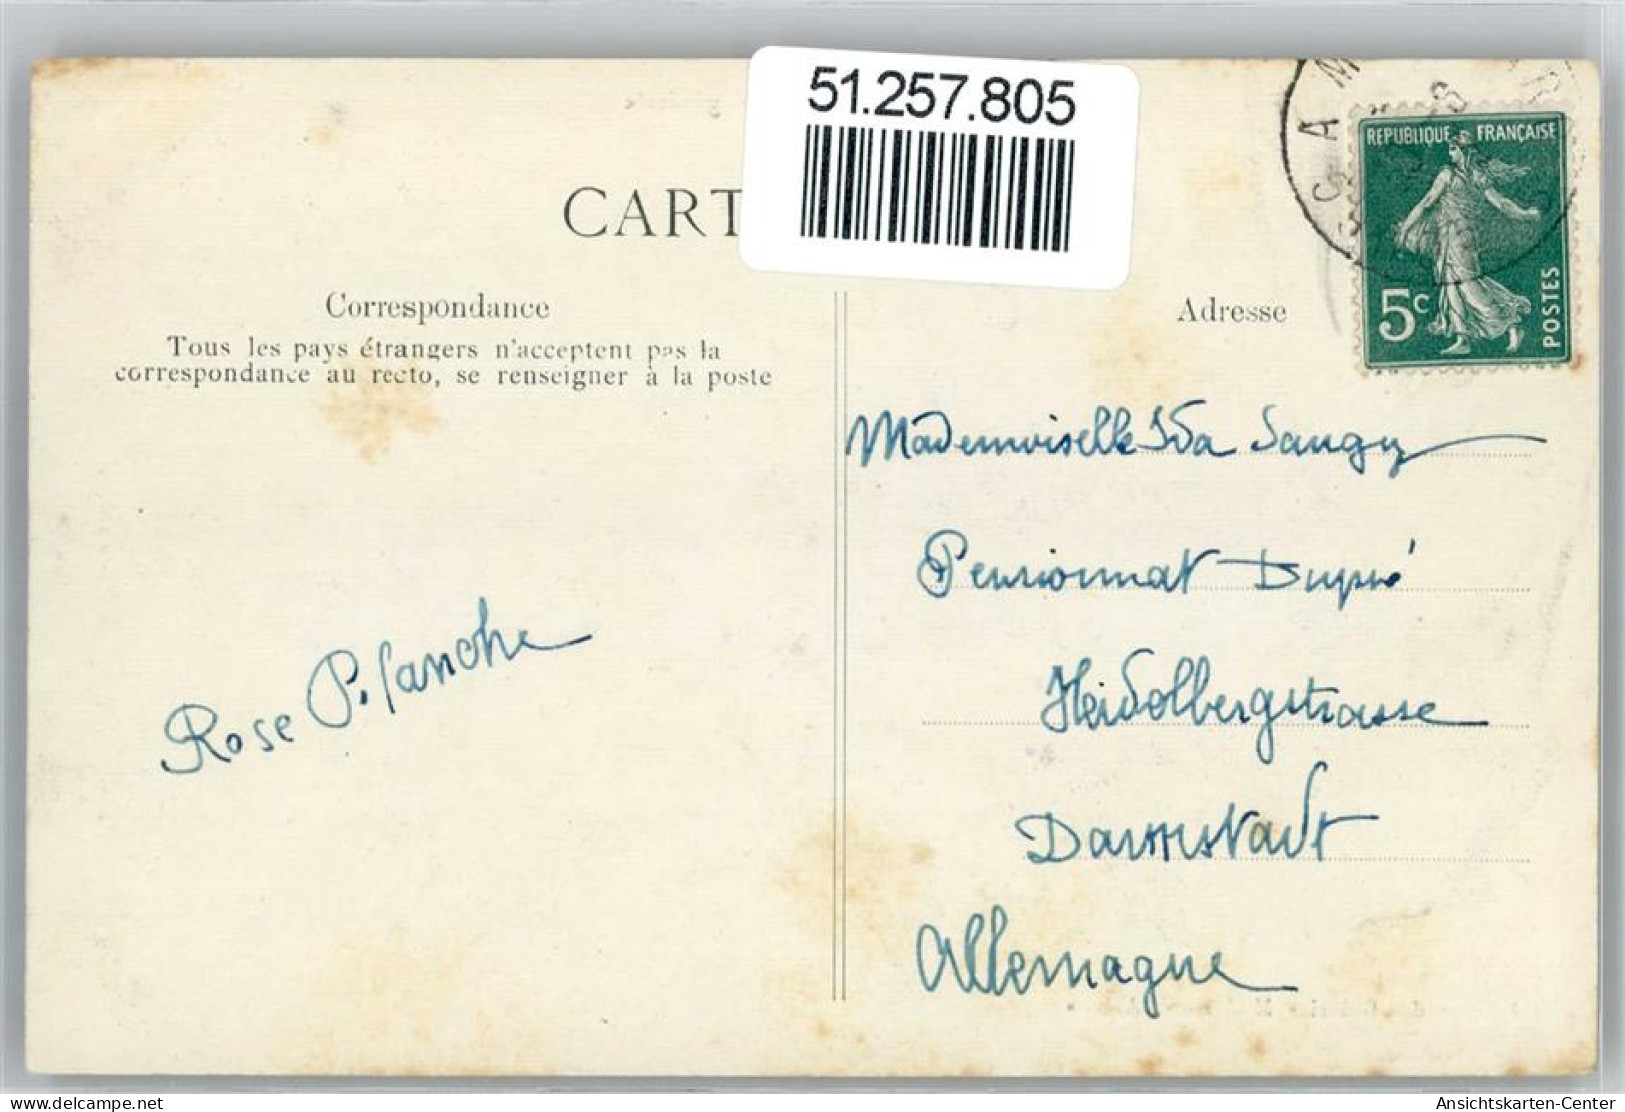 51.257.805
CART
CAM
REPUBLIQUE FRANÇAISE
5c
POSTES
Correspondance
Tous les pays étrangers n'acceptent pas la
correspondance au recto, se renseigner à la poste
Adresse
Mademoiselle Ida Saugy
Pensionnat Dupré
Heidelbergstrasse
Darmstadt
Allemagne
Rose P. Lanche
delcampe.net
Ansichtskarten-Center